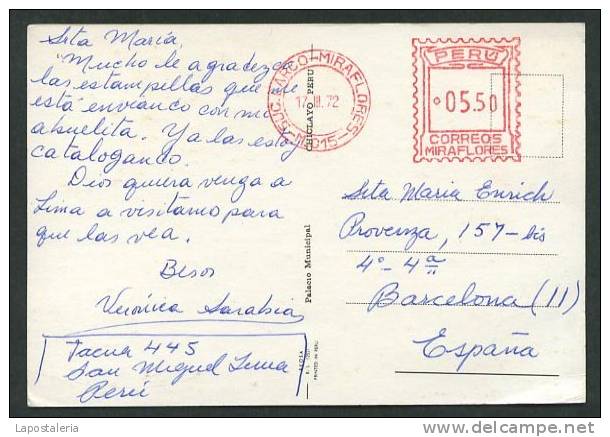 Srta María,
"Mucho le agradezco
las estampillas que me
está enviando con mi
abuelita. Ya las estoy
catalogando.
Dios quiera venga a
Lima a visitarnos para
que las vea.
Besos
Verónica Sarabia
Tacna 445
San Miguel Lima
Perú
CHICLAYO PERU
Palacio Municipal
PRINTED IN PERU
SUC. LARCO-MIRAFLORES
17 III. 72
PERU
05.50
CORREOS
MIRAFLORES
Srta Maria Enrich
Provenza, 157-bis
4º-4ª
Barcelona (11)
España
Lapostaleria
©delcampe.net